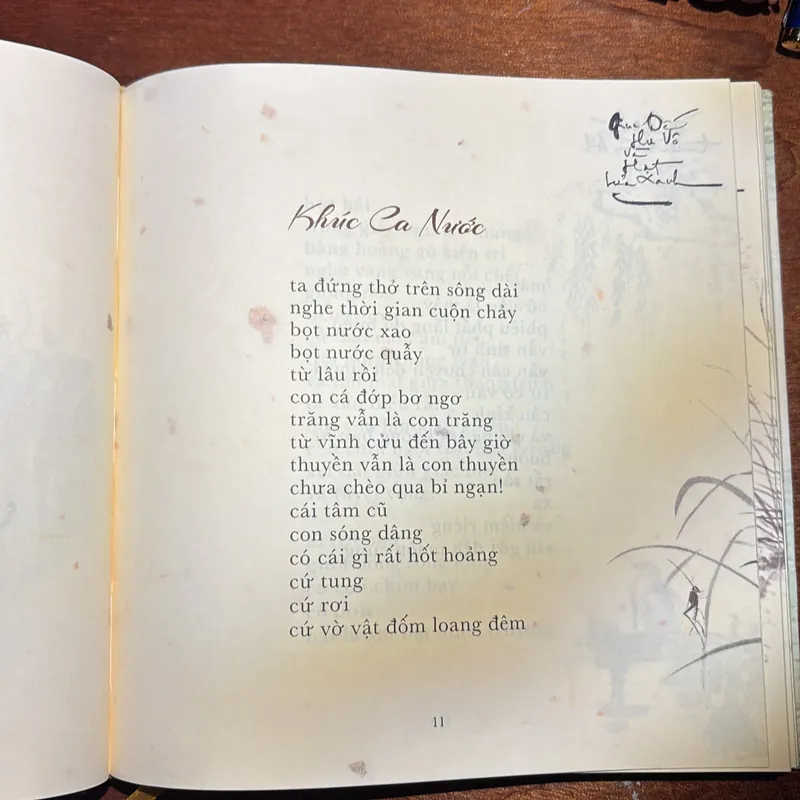 Dấu
Hư Vô
Và
Hạt
Lúa Xanh
Khúc Ca Nước
ta đứng thở trên sông dài
nghe thời gian cuộn chảy
bọt nước xao
bọt nước quẫy
từ lâu rồi
con cá đớp bơ ngơ
trăng vẫn là con trăng
từ vĩnh cửu đến bây giờ
thuyền vẫn là con thuyền
chưa chèo qua bỉ ngạn!
cái tâm cũ
con sóng dâng
có cái gì rất hốt hoảng
cứ tung
cứ rơi
cứ vờ vật đốm loang đêm
11